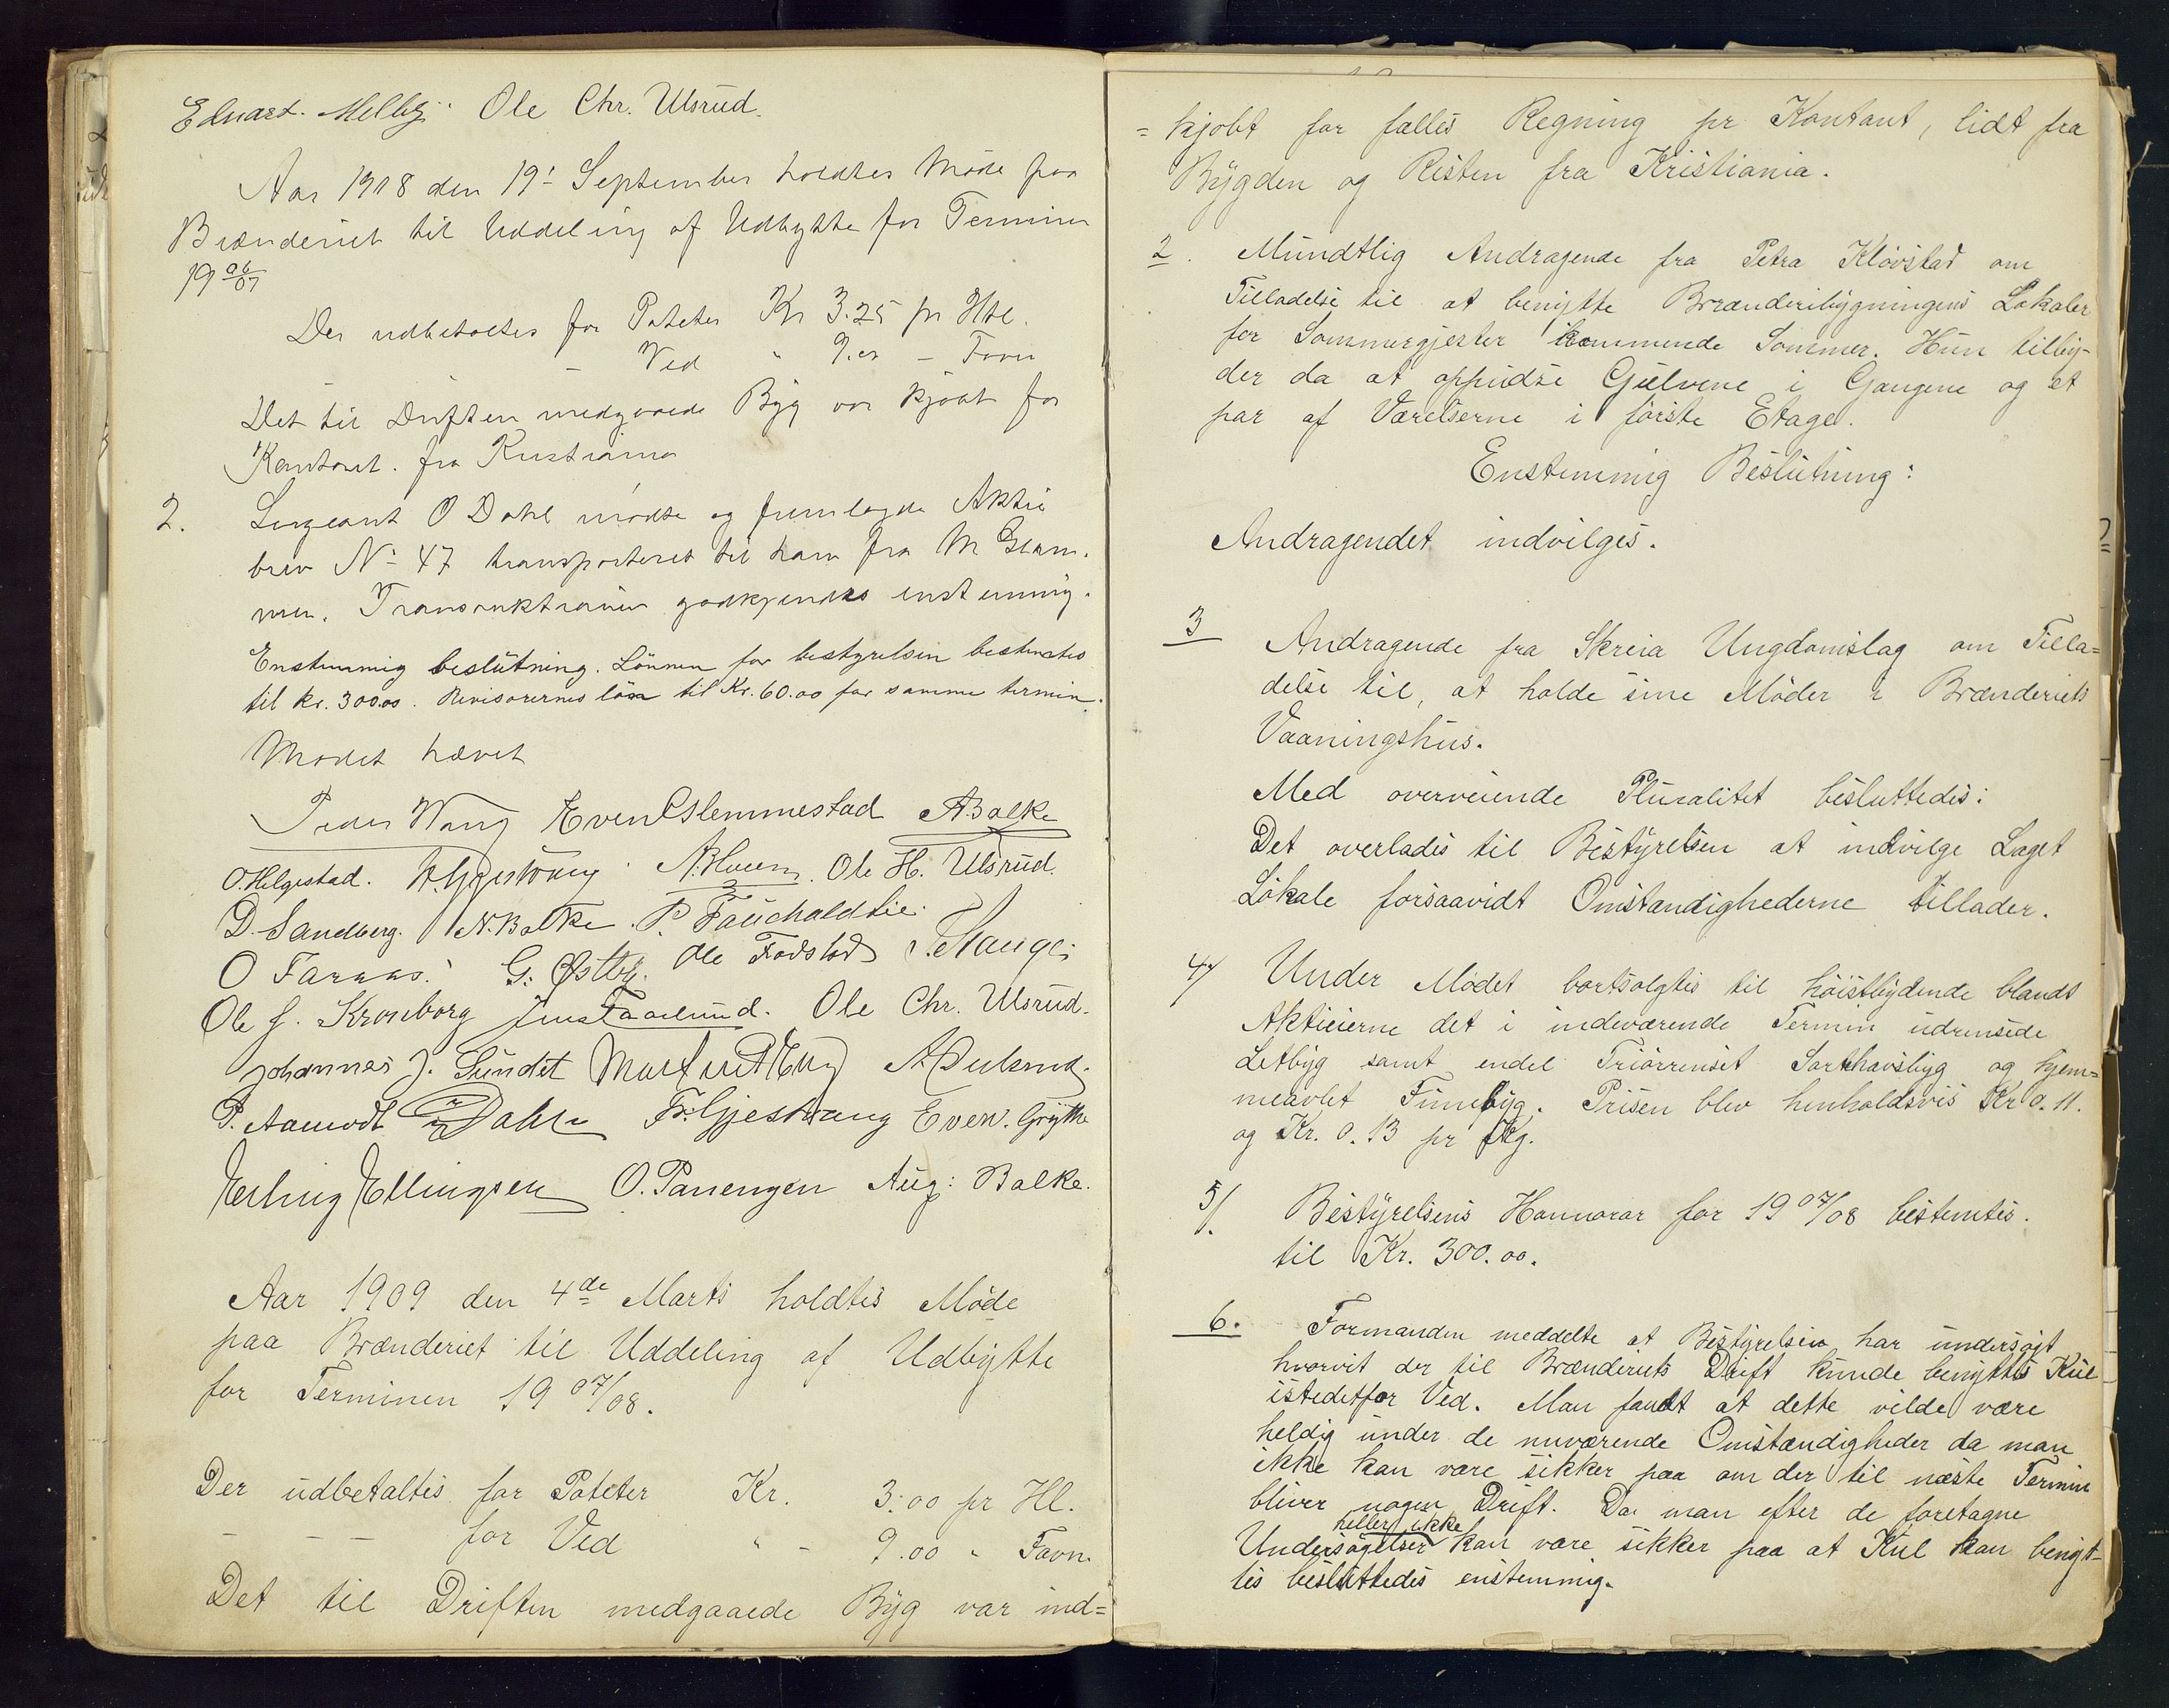 Eduart. Melby. Ole Chr. Ulsrud.
Aar 1908 den 19' September holdtes Møde paa
Brænderiet til Uddeling af Udbytte for Terminen
19 06/07
Der udbetaltes for Poteter Kr 3.25 pr Htl.
— Ved " 9.00 — Favn
Det til Driften medgaaede Byg var kjøbt for
Kontant. fra Kristiania
2. Sergeant O Dahl mødte og fremlagde Aktie
brev No 47 transporteret til ham fra M Glem.
men. Transaktionen godkjendtes enstemmig.
Enstemmig beslutning. Lønnen for bestyrelsen bestemtes
til kr. 300.00. Revisorernes løn til Kr. 60.00 for samme termin.
Mødet hævet
Peder Wang Even Slemmestad A Balke
O. Helgestad. H. Gjestvang. N. Huem. Ole H. Ulsrud.
D. Sandberg. N. Balke. P. Fauchaldlie.
O Faraas. G. Østby. Ole Fodstad J. Hauger
Ole J. Kronborg Jens Faarlund. Ole Chr. Ulsrud.
Johannes J. Sundet Martin A.
P. Aamodt Dahl Fr. Gjestvang Even. Grytte
Erling Ellingsen O. Panengen Aug: Balke.
Aar 1909 den 4de Marts holdtes Møde
paa Brænderiet til Uddeling af Udbytte
for Terminen 19 07/08.
Der udbetaltes for Poteter Kr. 3.00 pr Hl.
— — — for Ved " - 9.00 " Favn.
Det til Driften medgaaede Byg var ind=
= kjøbt for fælles Regning pr Kontant, lidt fra
Bygden og Resten fra Kristiania.
2. Mundtlig Andragende fra Petra Kløvstad om
Tilladelse til at benytte Brænderibygningens Lokaler
for Sommergjester kommende Sommer. Hun tilby-
der da at oppudse Gulvene i Gangene og et
par af Værelserne i første Etage.
Enstemmig Beslutning:
Andragendet indvilges.
3 Andragende fra Skreia Ungdomslag om Tilla=
delse til, at holde sine Møder i Brænderiets
Vaaningshus.
Med overveiende Pluralitet besluttedes:
Det overlades til Bestyrelsen at indvilge Laget
Lokale forsaavidt Omstændighederne tillader.
4/ Under Mødet bortsolgtes til høistbydende blandt
Aktieierne det i indeværende Termin udrensede
Letbyg samt endel Triørrenset Sortehavsbyg og hjem=
meavlet Finebyg. Prisen blev henholdsvis Kr 0.11.
og Kr. 0.13 pr Kg.
5/. Bestyrelsens Honnorar for 19 07/08 bestemtes.
til Kr. 300.00.
6. Formanden meddelte at Bestyrelsen har undersøgt
hvorvit der til Brænderiets Drift kunde benyttes Kul
istedetfor Ved. Man fandt at dette vilde være
heldig under de nuværende Omstændigheder da man
ikke kan være sikker paa om der til næste Termin
bliver nogen Drift. Da man efter de foretagne
Undersøgelser heller ikke kan være sikker paa at Kul kan benyt-
tes besluttedes enstemmig.